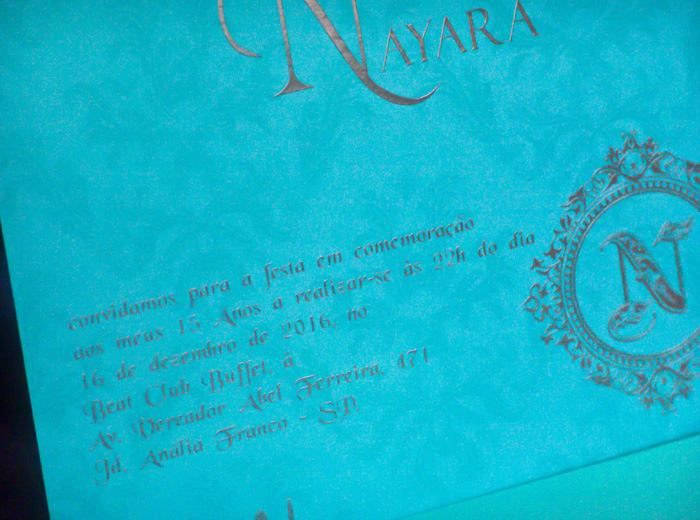 NAYARA
convidamos para a festa em comemoração
aos meus 15 Anos a realizar-se às 22h do dia
16 de dezembro de 2016, no
Beat Club Buffet, à
Av. Vereador Abel Ferreira, 471
Jd. Anália Franco - SP.
N
N